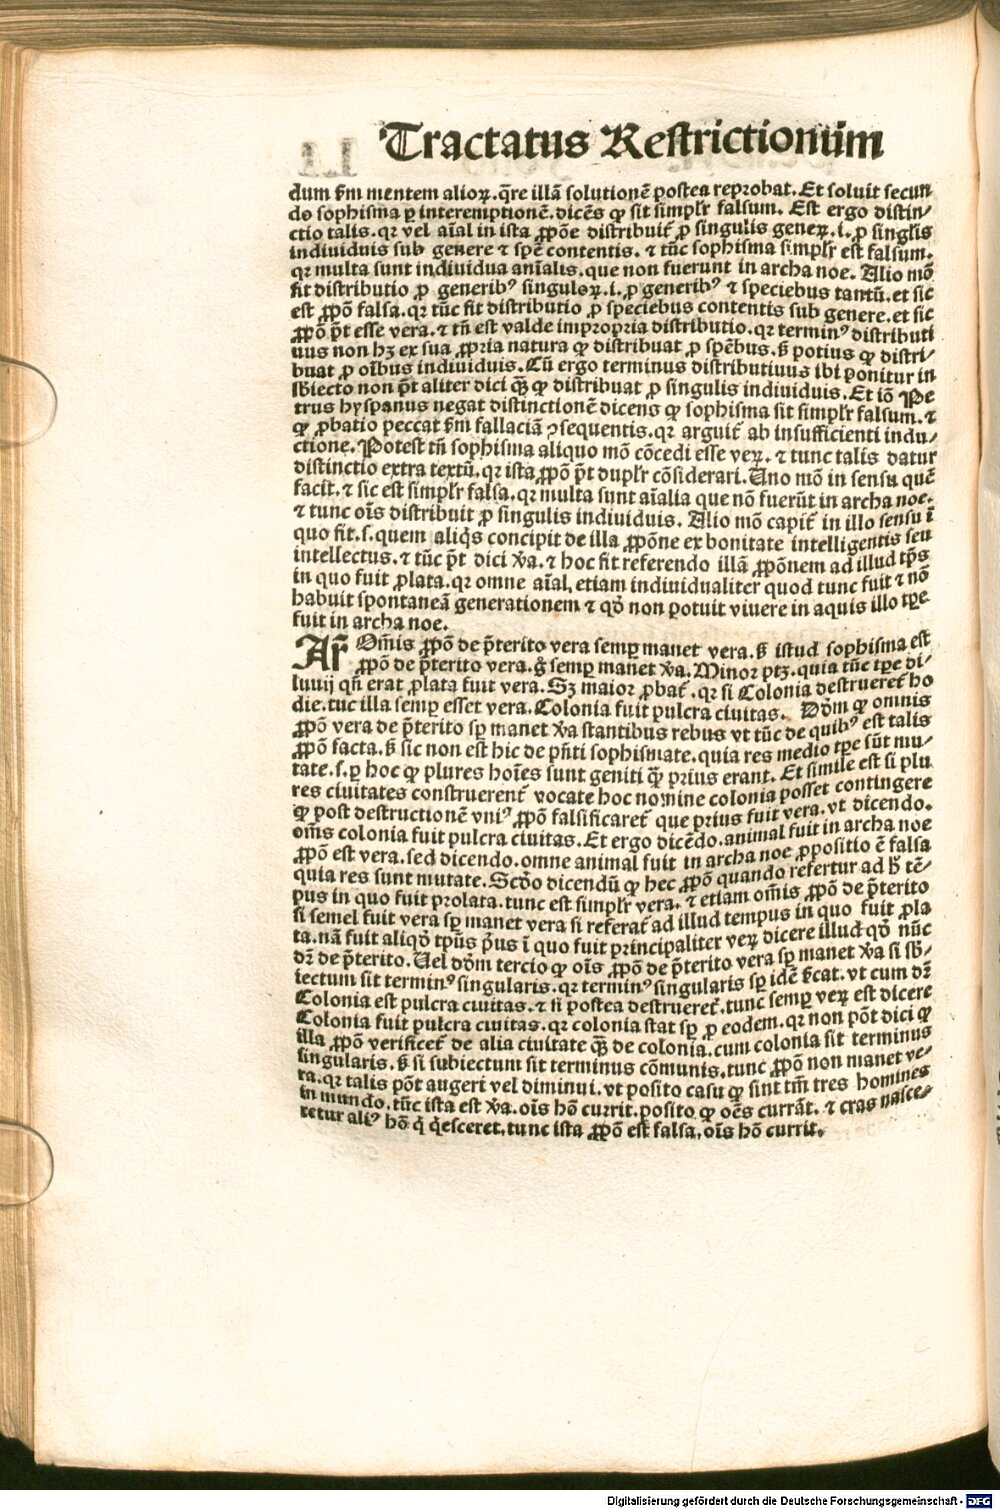 Tractatus Restrictionum
dum ẜm mentem alioꝝ. q̄re illā solutionē postea reprobat. Et soluit secun
do sophisma ꝑ interemptionē. dicēs ꝙ sit simplr̄ falsum. Est ergo distin/
ctio talis. qꝛ vel aīal in ista ꝓpōe distribuit̄ ꝓ singulis geneꝝ. i. ꝓ singl̄is
indiuiduis sub genere ⁊ spē contentis. ⁊ tūc sophisma simplr̄ est falsum.
qꝛ multa sunt indiuidua anīalis. que non fuerunt in archa noe. Alio mō
fit distributio ꝓ generibꝰ singuloꝝ. i. ꝓ generibꝰ ⁊ speciebus tantū. et sic
est ꝓpō falsa. qꝛ tūc fit distributio ꝓ speciebus contentis sub genere. et sic
ꝓpō p̄t esse vera. ⁊ tn̄ est valde impropria distributio. qꝛ terminꝰ distributi
uus non hꝫ ex sua ꝓpria natura ꝙ distribuat ꝓ spēbus. ẜ potius ꝙ distri/
buat ꝓ oībus indiuiduis. Cū ergo terminus distributiuus ibi ponitur in
sb̄iecto non p̄t aliter dici qꝫ̄ ꝙ distribuat ꝓ singulis indiuiduis. Et iō Pe
trus hyspanus negat distinctionē dicens ꝙ sophisma sit simplr̄ falsum. ⁊
ꝙ ꝓbatio peccat ẜm fallaciā ꝯsequentis. qꝛ arguit̄ ab insufficienti indu/
ctione. Potest tn̄ sophisma aliquo mō cōcedi esse veꝝ. ⁊ tunc talis datur
distinctio extra textū. qꝛ ista ꝓpō p̄t duplr̄ cōsiderari. Uno mō in sensu quē
facit. ⁊ sic est simplr̄ falsa. qꝛ multa sunt aīalia que nō fuerūt in archa noe.
⁊ tunc oīs distribuit ꝓ singulis indiuiduis. Alio mō capit̄ in illo sensu ī
quo fit. s. quem aliq̄s concipit de illa ꝓpōne ex bonitate intelligentis seu
intellectus. ⁊ tūc p̄t dici v̄a. ⁊ hoc fit referendo illā ꝓpōnem ad illud tp̄s
in quo fuit ꝓlata. qꝛ omne aīal, etiam indiuidualiter quod tunc fuit ⁊ nō
habuit spontaneā generationem ⁊ qd̄ non potuit viuere in aquis illo tꝑe
fuit in archa noe.
Ar̄ Om̄is ꝓpō de p̄terito vera semꝑ manet vera. ẜ istud sophisma est
ꝓpō de p̄terito vera. g̊ semꝑ manet v̄a. Minor ptꝫ. quia tūc tꝑe di/
luuij qn̄ erat ꝓlata fuit vera. Sꝫ maior ꝓbat̄. qꝛ si Colonia destrueret̄ ho
die. tuc illa semꝑ esset vera. Colonia fuit pulcra ciuitas. Dd̄m ꝙ omnis
ꝓpō vera de p̄terito sꝑ manet v̄a stantibus rebus vt tūc de quibꝰ est talis
ꝓpō facta. ẜ sic non est hic de pn̄ti sophismate. quia res medio tꝑe sūt mu/
tate. s. ꝑ hoc ꝙ plures hoīes sunt geniti qꝫ̄ prius erant. Et simile est si plu
res ciuitates construerent̄ vocate hoc nomine colonia posset contingere
ꝙ post destructionē vniꝰ ꝓpō falsificaret̄ que prius fuit vera. vt dicendo.
om̄s colonia fuit pulcra ciuitas. Et ergo dicēdo. animal fuit in archa noe
ꝓpō est vera. sed dicendo. omne animal fuit in archa noe ꝓpositio ē falsa
quia res sunt mutate. Scd̄o dicendū ꝙ hec ꝓpō quando refertur ad h̄ tē/
pus in quo fuit prolata. tunc est simplr̄ vera. ⁊ etiam om̄is ꝓpō de p̄terito
si semel fuit vera sꝑ manet vera si referat̄ ad illud tempus in quo fuit ꝓla
ta. nā fuit aliqd̄ tp̄us p̄us ī quo fuit principaliter veꝝ dicere illud qd̄ nūc
dr̄ de p̄terito. Uel dd̄m tercio ꝙ oīs ꝓpō de p̄terito vera sꝑ manet v̄a si sb̄/
iectum sit terminꝰ singularis. qꝛ terminꝰ singularis sꝑ idē ẜcat. vt cum dr̄
Colonia est pulcra ciuitas. ⁊ si postea destrueret̄. tunc semꝑ veꝝ est dicere
Colonia fuit pulcra ciuitas. qꝛ colonia stat sꝑ ꝓ eodem. qꝛ non pōt dici ꝙ
illa ꝓpō verificet̄ de alia ciuitate qꝫ̄ de colonia. cum colonia sit terminus
singularis. ẜ si subiectum sit terminus cōmunis. tunc ꝓpō non manet ve/
ra. qꝛ talis pōt augeri vel diminui. vt posito casu ꝙ sint tm̄ tres homines
in mundo. tūc ista est v̄a. oīs hō currit. posito ꝙ oēs currāt. ⁊ cras nasce/
retur aliꝰ hō q̇ q̇esceret. tunc ista ꝓpō est falsa, oīs hō currit.
Digitalisierung gefördert durch die Deutsche Forschungsgemeinschaft - DFG